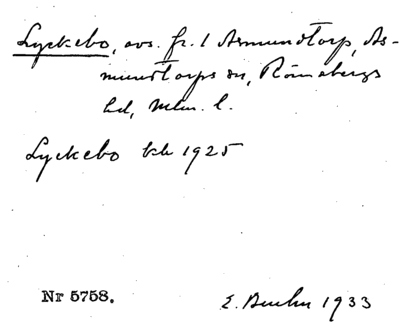 Lyckebo, avs. fr. 1 Asmundtorp, As-
mundtorps sn, Rönnebergs
hd, Mlm. l.
Lyckebo kb 1925
Nr 5758.
E. 1933